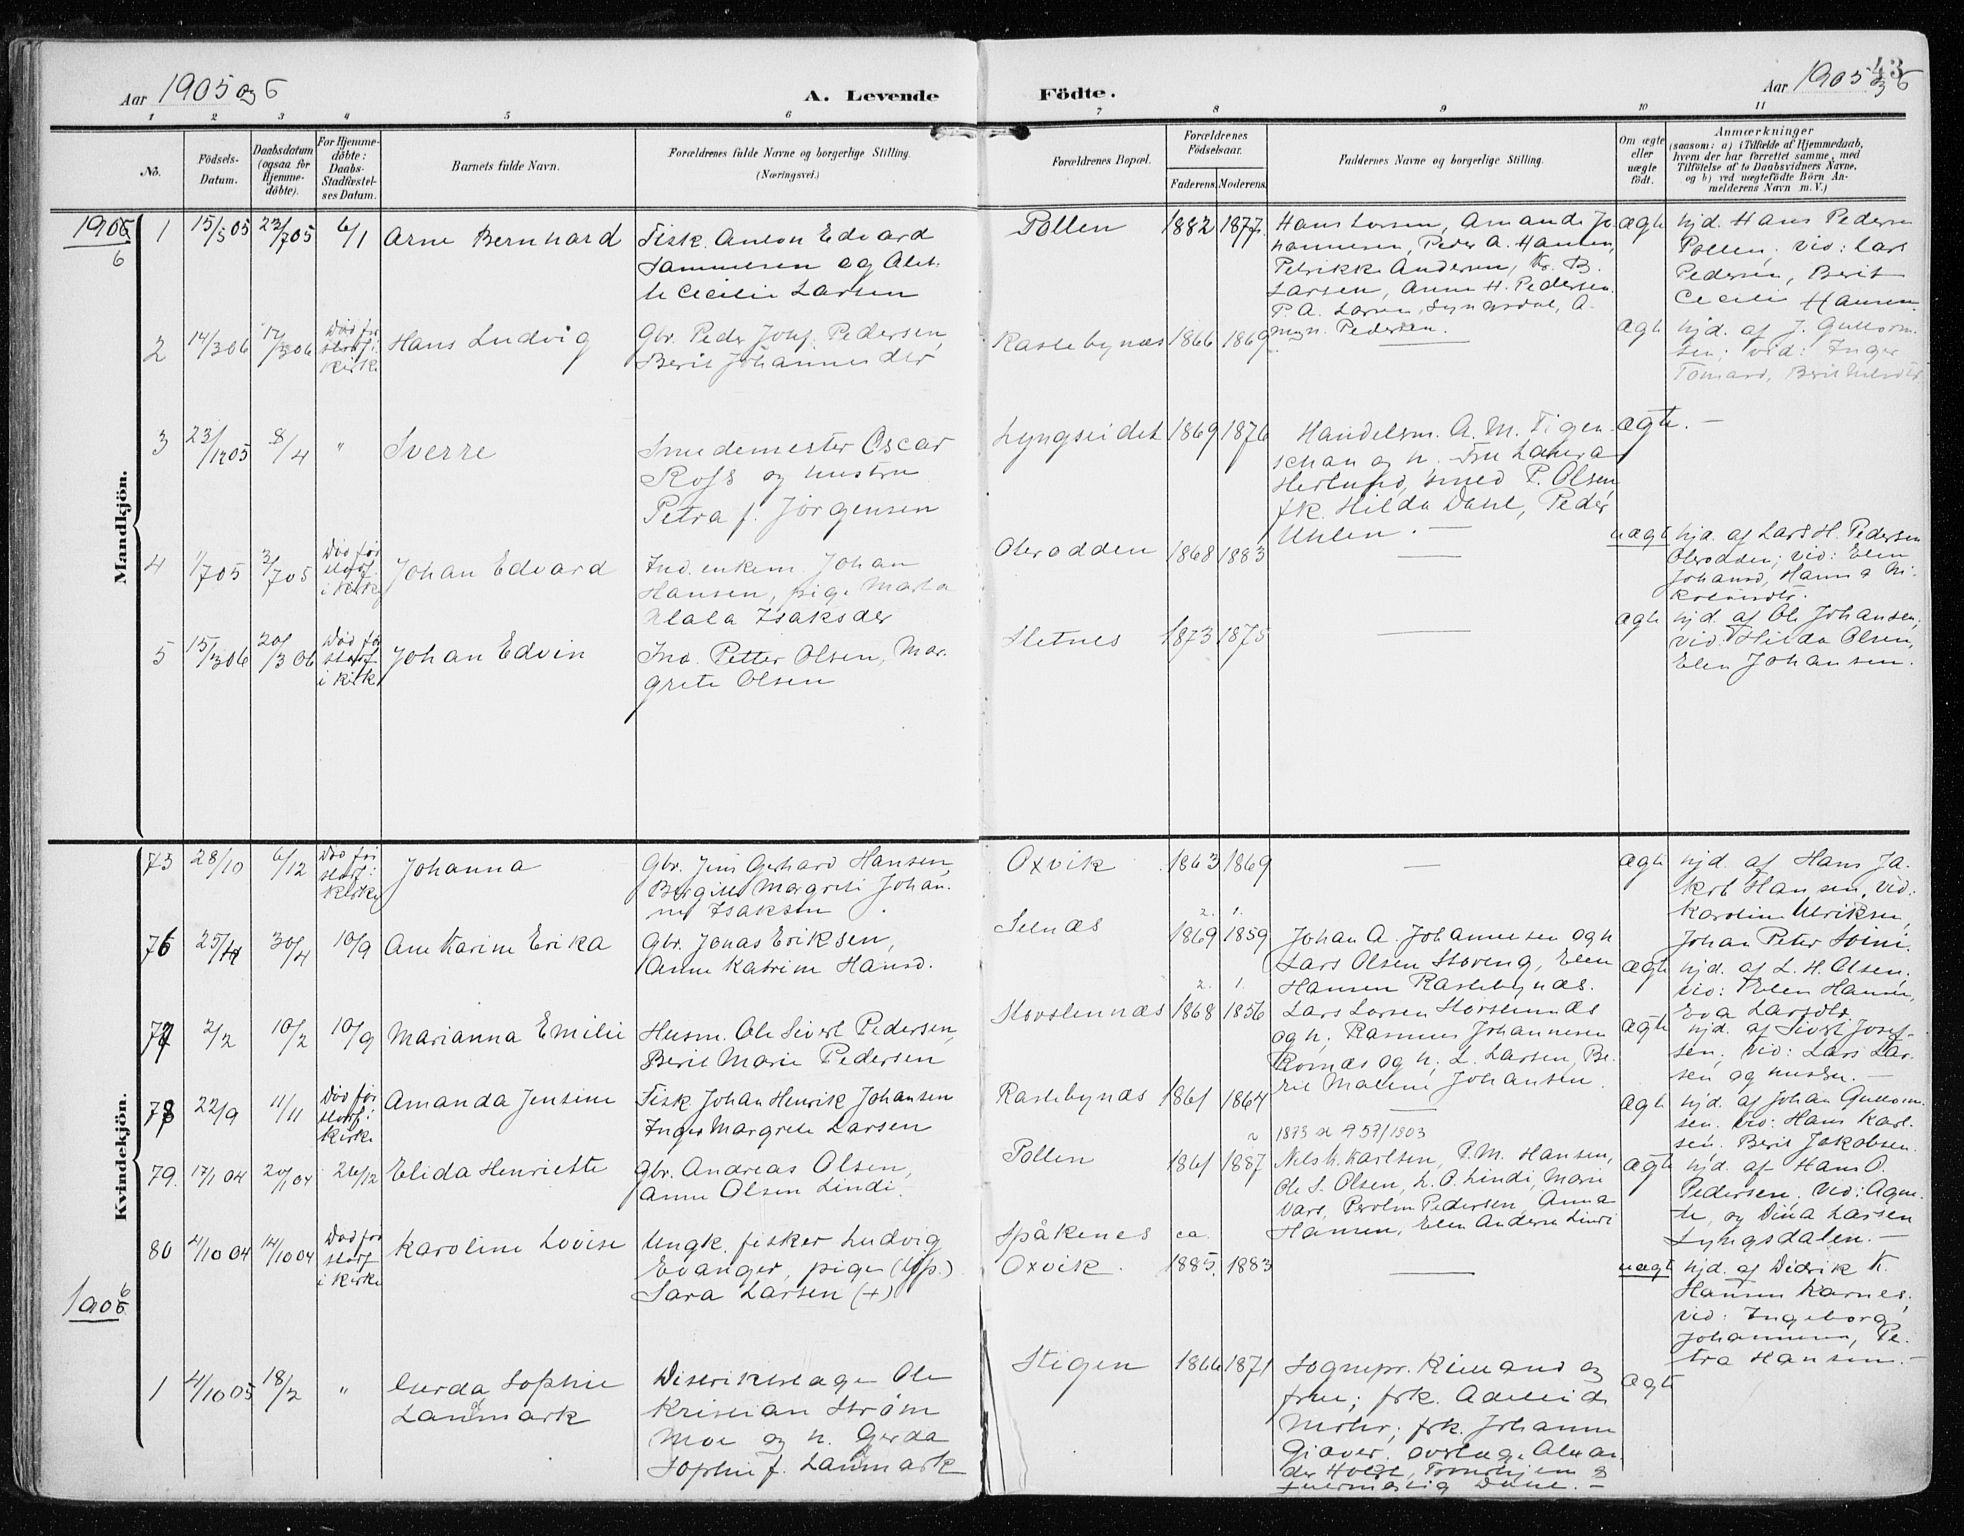 43
Aar 1905 og 6
A. Levende
Födte.
Aar 1905 og 6
1 2 3 4 5 6 7 8 9 10 11
No.
Födsels-
Datum.
Daabsdatum
(ogsaa for
Hjemme-
döbte).
For Hjemme-
döbte:
Daabs-
Stadfæstel-
ses Datum.
Barnets fulde Navn.
Forældrenes fulde Navne og borgerlige Stilling.
(Næringsvei.)
Forældrenes Bopæl.
Forældrenes
Födselsaar.
Faderens. Moderens.
Faddernes Navne og borgerlige Stilling.
Om ægte
eller
uægte
födt.
Anmærkninger
(saasom: a) i Tilfælde af Hjemmedaab,
hvem der har forrettet samme, med
Tilföielse af to Daabsvidners Navne,
og b) ved uægtefödte Börn An-
melderens Navn m. V.)
Mandkjön.
1906
6
1 15/5 05 23/7 05 6/1 Arne Bernhard
Fisk. Anton Edvard
Sammelsen og Alet-
te Cecilie Larsen
Pollen 1882 1877
Hans Larsen, Amanda Jo-
hannesen, Peder A. Hansen,
Petrikke Andersen, Kr. B.
Larsen, Anne H. Pedersen
P. A. Larsen, Lyngsdal, A.
Pedersen.
ægte
hjd. Hans Peders
Pollen; vid: Lars
Pedersen, Berit
Cecilie Hansen
2 14/3 06 17/3 06
Död før
stadf. i
kirke
Hans Ludvig
Gbr. Peder Josef Pedersen,
Berit Johannesdtr
Rastebynæs 1866 1869
ægte
hjd. af J. Guttorm-
sen; vid: Inger
3 23/12 05 8/4 " Sverre
Smedemester Oscar
Ross og hustru
Petra f. Jørgensen
Lyngseidet 1869 1876
Handelsm. A. M. Figen-
schau og h. Fru Laura
Herlund, smed P. Olsen,
frk. Hilda Dahl, Peder
Uhlen. —
ægte. —
4 1/7 05 3/7 05
Död før
stadf.
i kirke
Johan Edvard
Ind. enkem. Johan
Hansen, pige Marta
Isaksdtr
Oterodden 1868 1883
uægte
hjd. af Lars H. Pedersen
Oterodden; vid: Elen
Johansd, Hanna Ni-
kolaisdtr.
5 15/3 06 20/3 06
Död før
stadf.
i kirke
Johan Edvin
Ind. Petter Olsen, Mar-
grete Olsen
Sletnes 1873 1875
ægte
hjd. af Ole Johansen;
vid: Hilda Olsen,
Elen Johansen.
Kvindekjön.
75 28/10 6/12
Död før
stadf. i
kirke
Johanna
Gbr. Jens Gerhard Hansen,
Bergitte Magrete Johan-
ne Isaksen
Oxvik 1863 1869
—
ægte
hjd. af Hans Ja-
kob Hansen, vid:
Karoline Ulriksen,
Johan Peter
76 25/4 30/4 10/9 Ane Karine Erika
Gbr. Jonas Eriksen,
Anne Katrine Hansd.
2. 1.
1869 1859
Johan A. Johannesen og h
Lars Olsen Storeng, Elen
Hansen Rastebynæs.
ægte
hjd. af L. H. Olsen,
vid: Elen Hansen,
Eva Larsdtr.
77 2/2 10/2 10/9 Marianna Emilie
Husm. Ole Sivert Pedersen,
Berit Marie Pedersen
2. 1.
1868 1856
Lars Larsen
og h, Rasmus Johannesen
Kornæs og h, L. Larsen, Be-
rit Malene Johansen.
ægte
hjd. af Sivert Josef-
sen. vid: Lars Lar-
sen og hustru. —
78 22/9 11/11
Död før
stadf. i
kirke
Amanda Jensine
Fisk Johan Henrik Johansen
Inger Margrete Larsen
Rastebynæs 1861 1864
ægte
hjd. af Johan Guttorm-
sen. vid: Hans Karl-
sen, Berit Jakobsen
79. 17/1 04 20/1 04 26/12 Elida Henriette
Gbr. Andreas Olsen,
Anne Olsen Lindi.
Pollen 1861 1887
1873 57/1903
Nels H. Karlsen, P. M. Hansen,
Ole S. Olsen, L. O. Lindi, Marie
Pedersen, Anna
Hansen, Elen Anders Lindi
ægte
hjd. af Hans O.
Pedersen; vid: Agne-
te, og Dina Larsen
Lyngsdalen. —
80 4/10 04 14/10 04
Död før
stadf
i kirke
Karoline Lovise
Ungk. fisker Ludvig
Evanger, pige
Sara Larsen (+)
Spåkenes ca.
Oxvik. 1885. 1883
uægte
hjd. af Didrik K.
Hansen Karnes,
vid: Ingeborg
Johannesen, Pe-
tra Hansen. —
1906
6
1 4/10 05 18/2 " Gerda Sophie
Lanmark
Distriktslæge Ole
Kristian Strøm
Moe og h. Gerda
Sophie f. Lanmark
Stigen 1866 1871
Sognepr. Kieland og
frue; frk. Adelaide
Mohr; frk. Johanne
Giæver, overlæge Alexan-
der Holst, Tronhjem og
ægte